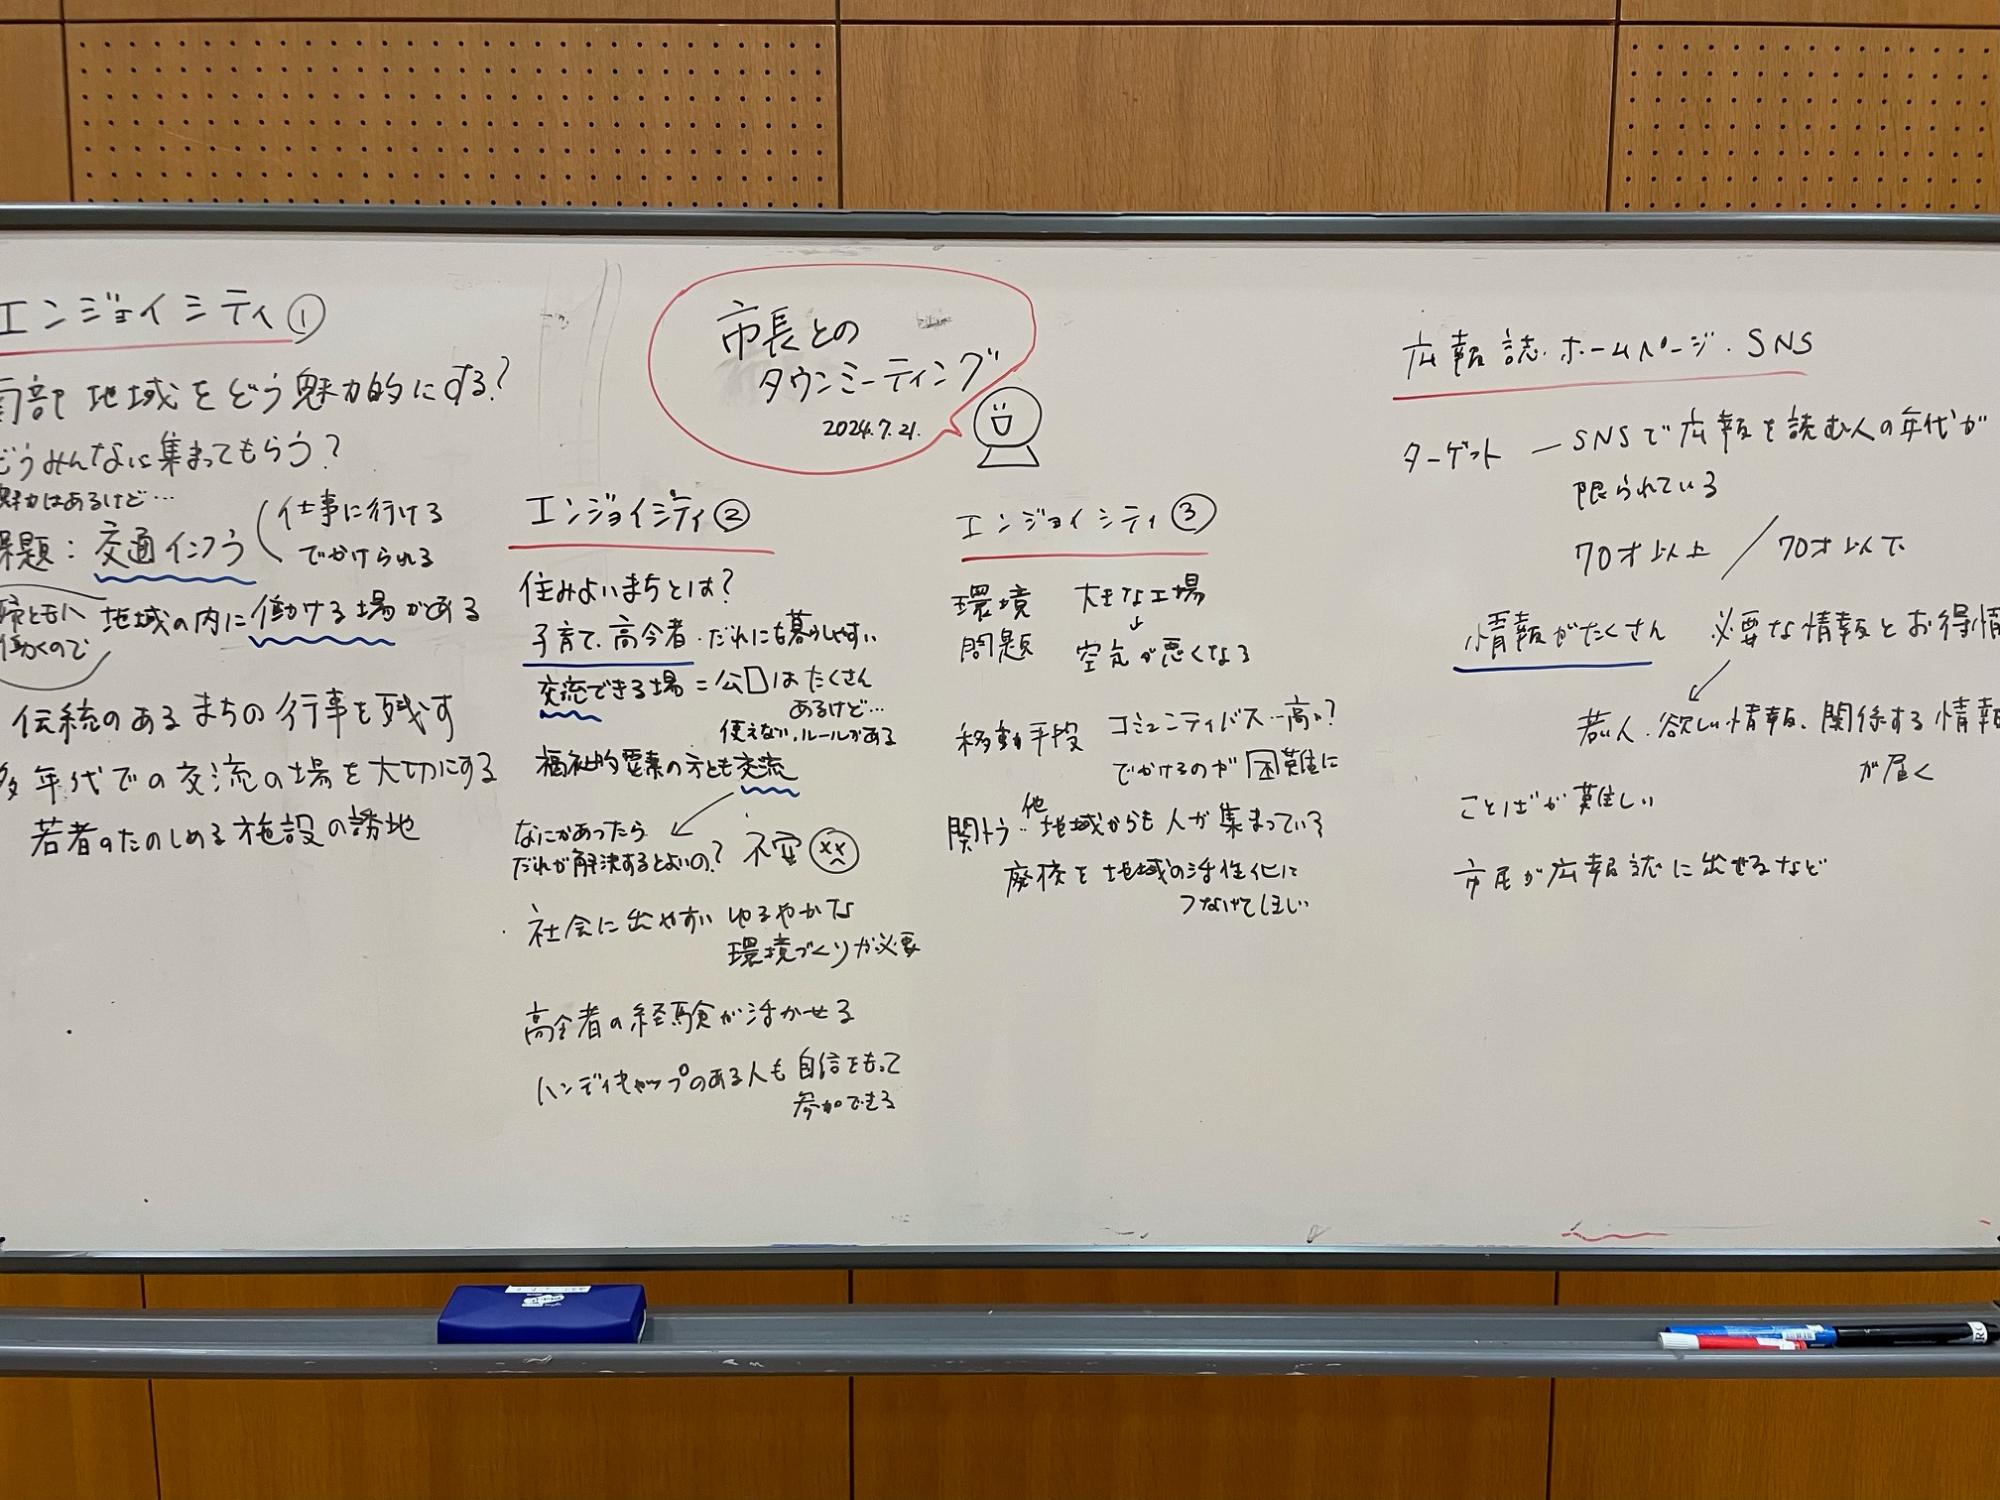 市長との
タウンミーティング
2024.7.21.
エンジョイシティ①
南部地域をどう魅力的にする?
どうみんなに集まってもらう?
魅力はあるけど…
課題:交通インフラ
仕事に行ける
でかけられる
婦ともに
働くので
地域の内に働ける場がある
伝統のあるまちの行事を残す
多年代での交流の場を大切にする
若者のたのしめる施設の誘地
エンジョイシティ②
住みよいまちとは?
子育て、高令者・だれにも暮らしやすい
交流できる場=公口はたくさん
あるけど…
使えない、ルールがある
福祉的要素の方とも交流
なにかあったら
だれが解決するとよいの?
不安
社会に出やすい ゆるやかな
環境づくりが必要
高令者の経験が活かせる
ハンディキャップのある人も自信をもって
参加できる
エンジョイシティ③
環境
問題
大きな工場
↓
空気が悪くなる
移動手段 コミュニティバス…高い?
でかけるのが困難に
関トラ…他地域からも人が集まっている
廃校を地域の活性化に
つなげてほしい
広報誌・ホームページ・SNS
ターゲット — SNSで広報を読む人の年代が
限られている
70才以上 / 70才以下
情報がたくさん 必要な情報とお得情
若い人、欲しい情報、関係する情報
が届く
ことばが難しい
市民が広報誌に出せるなど